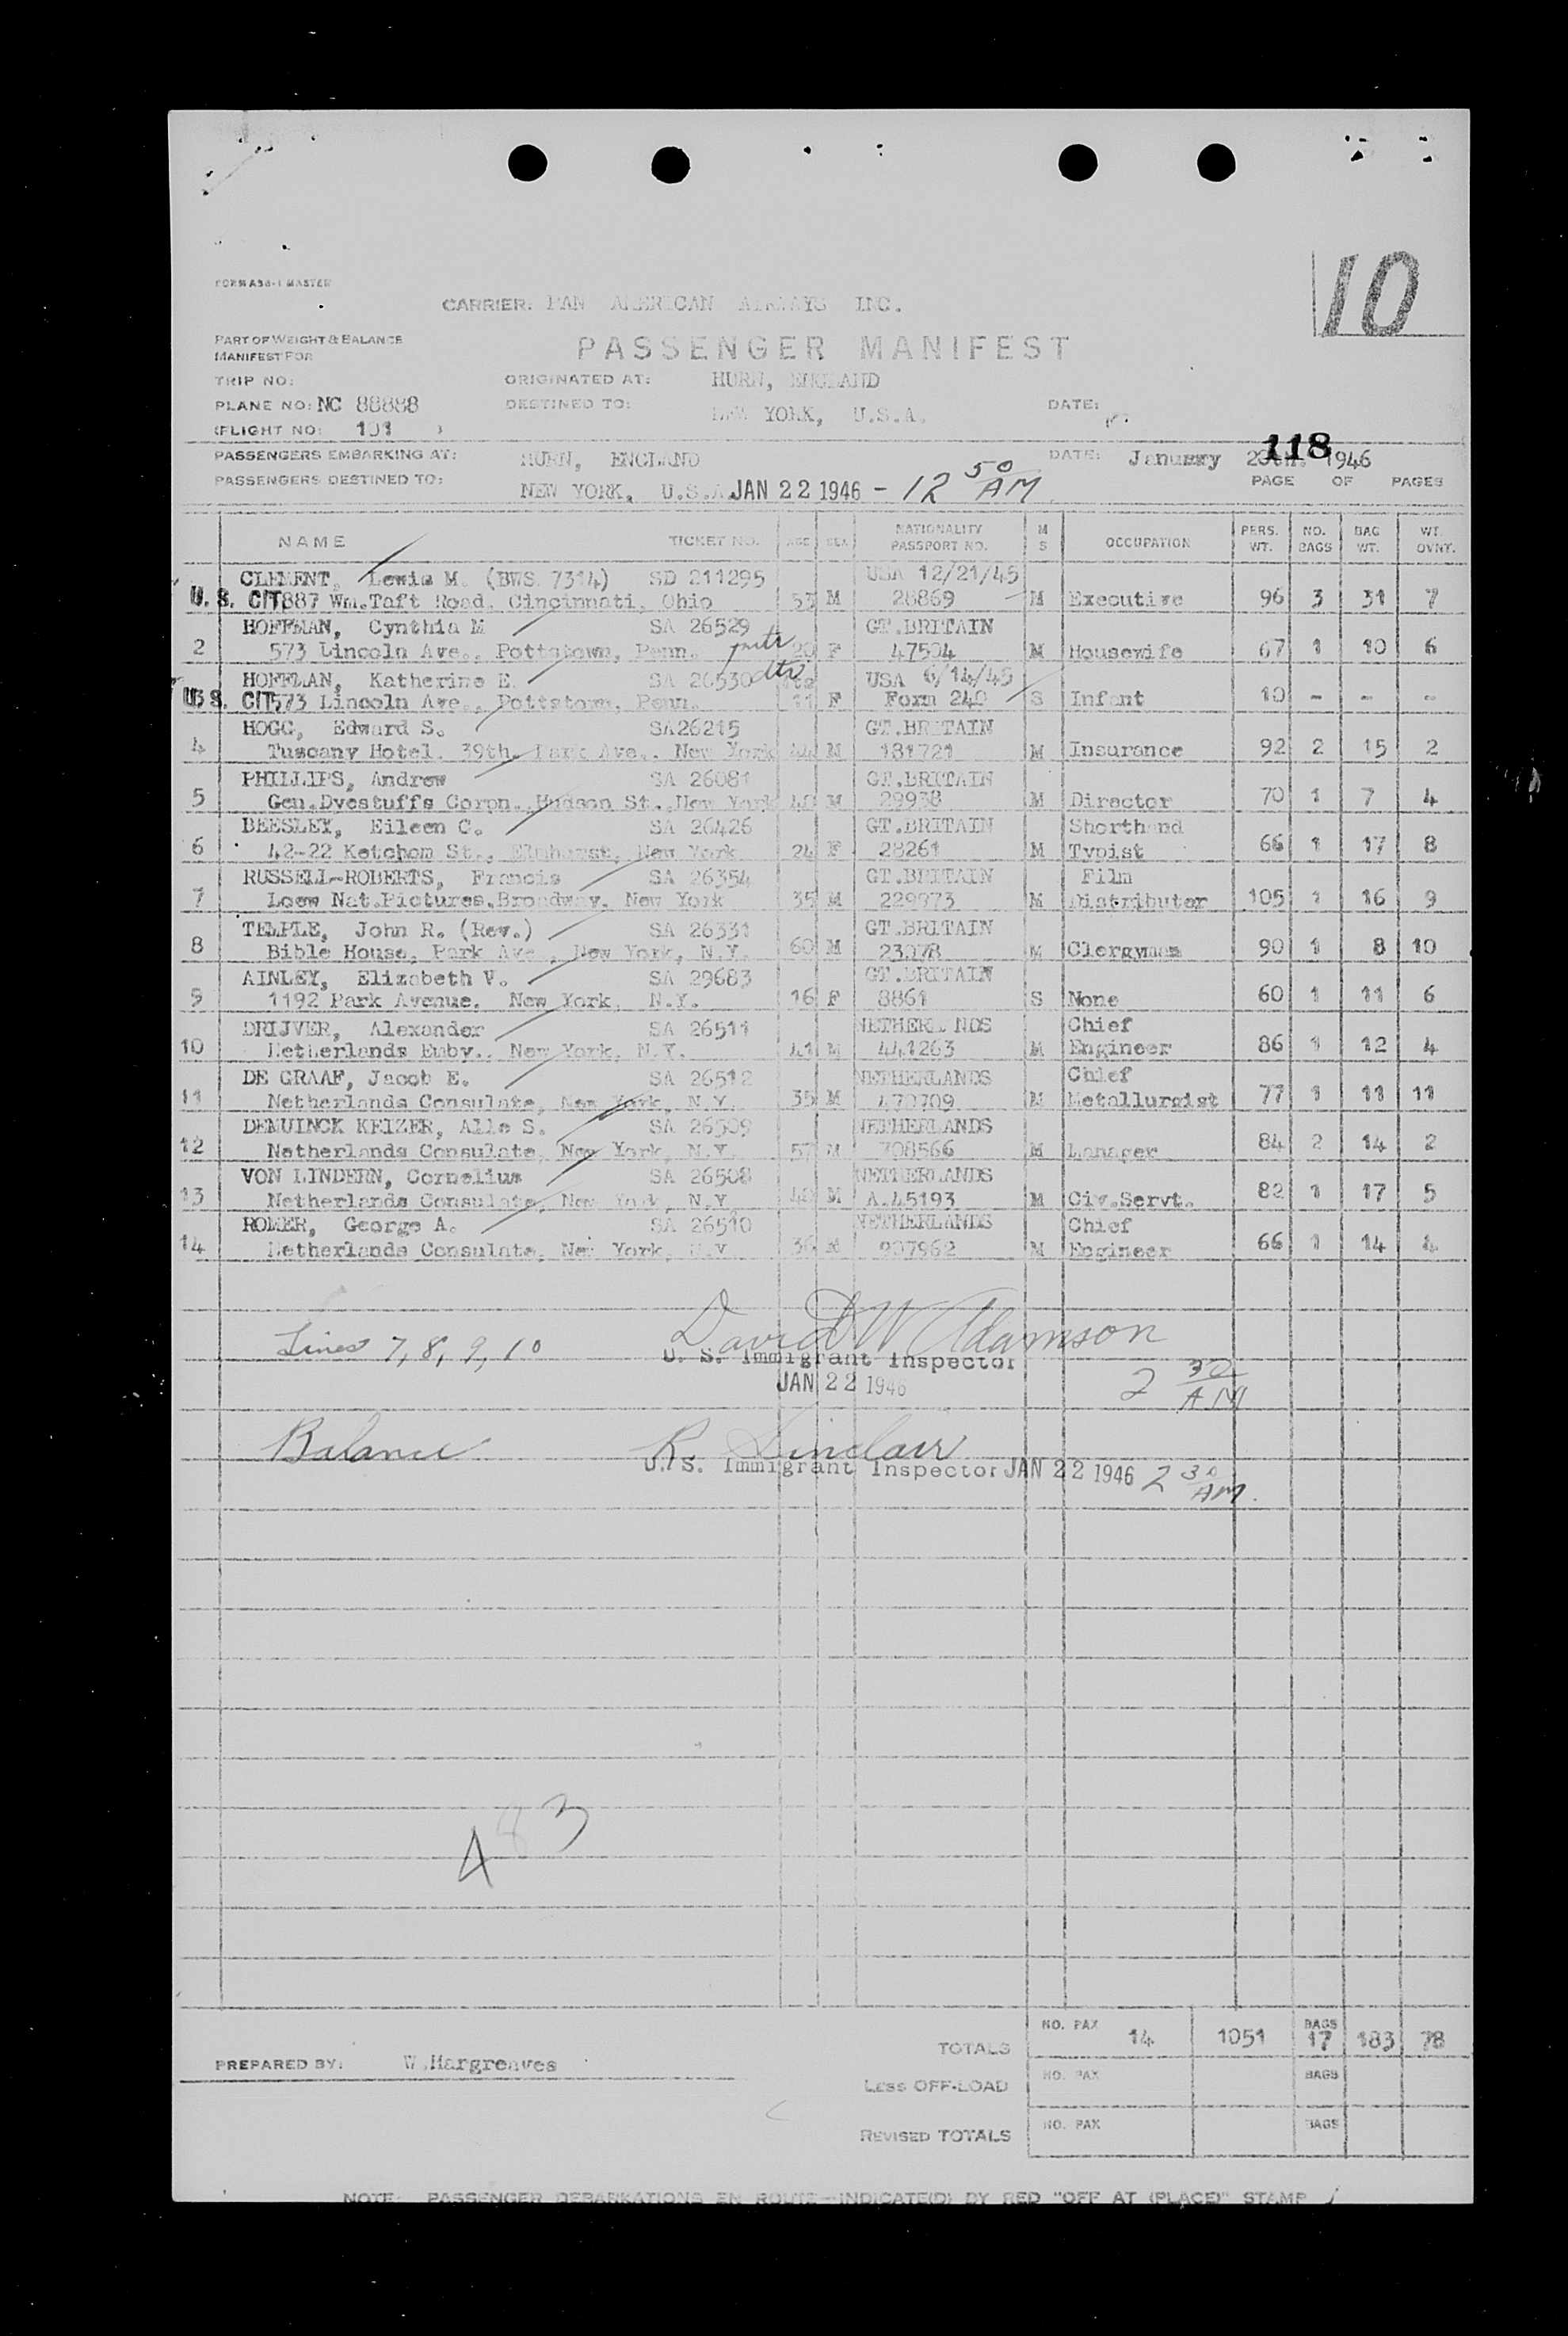 FORM A36-1 MASTER
10
CARRIER: PAN AMERICAN AIRWAYS INC.
PART OF WEIGHT & BALANCE
MANIFEST FOR
PASSENGER MANIFEST
TRIP NO:
ORIGINATED AT: HURN, ENGLAND
PLANE NO: NC 88888
DESTINED TO: NEW YORK, U.S.A.
DATE:
(FLIGHT NO: 101 )
118
PASSENGERS EMBARKING AT: HURN, ENGLAND
DATE: January 1946
PASSENGERS DESTINED TO: NEW YORK, U.S.A. JAN 22 1946 - 12 50 AM
PAGE OF PAGES
NAME TICKET NO. AGE SEX NATIONALITY PASSPORT NO. M S OCCUPATION PERS. WT. NO. BAGS BAG WT. WT. OVNT.
CLEMENT, Lewis M. (BWS 7314) SD 211295 USA 12/21/45
U. S. CIT 887 Wm.Taft Road, Cincinnati, Ohio 53 M 28869 M Executive 96 3 31 7
HOFFMAN, Cynthia M SA 26529 GT.BRITAIN
2 573 Lincoln Ave., Pottstown, Penn. 20 F 47504 M Housewife 67 1 10 6
HOFFMAN, Katherine E. SA 26530 dtr USA 6/14/45
U. S. CIT 573 Lincoln Ave., Pottstown, Penn. 11 F Form 240 S Infant 10 - - -
HOGG, Edward S. SA26215 GT.BRITAIN
4 Tuscany Hotel, 39th. Park Ave., New York 44 M 181721 M Insurance 92 2 15 2
PHILLIPS, Andrew SA 26081 GT.BRITAIN
5 Gen.Dyestuffs Corpn., Hudson St., New York 40 M 29938 M Director 70 1 7 4
BEESLEY, Eileen C. SA 26426 GT.BRITAIN Shorthand
6 42-22 Ketchom St., Elmhurst, New York 24 F 28261 M Typist 66 1 17 8
RUSSELL-ROBERTS, Francis SA 26354 GT.BRITAIN Film
7 Loew Nat.Pictures,Broadway, New York 35 M 229973 M Distributor 105 1 16 9
TEMPLE, John R. (Rev.) SA 26331 GT.BRITAIN
8 Bible House, Park Ave., New York, N.Y. 60 M 23078 M Clergyman 90 1 8 10
AINLEY, Elizabeth V. SA 29683 GT.BRITAIN
9 1192 Park Avenue, New York, N.Y. 16 F 8861 S None 60 1 11 6
DRIJVER, Alexander SA 26511 NETHERLANDS Chief
10 Netherlands Emby., New York, N.Y. 41 M 441263 M Engineer 86 1 12 4
DE GRAAF, Jacob E. SA 26512 NETHERLANDS Chief
11 Netherlands Consulate, New York, N.Y. 35 M 470709 M Metallurgist 77 1 11 11
DEMUINCK KEIZER, Alle S. SA 26509 NETHERLANDS
12 Netherlands Consulate, New York, N.Y. 57 M 708566 M Manager 84 2 14 2
VON LINDERN, Cornelius SA 26508 NETHERLANDS
13 Netherlands Consulate, New York, N.Y. 40 M A.45193 M Civ.Servt. 82 1 17 5
ROMER, George A. SA 26510 NETHERLANDS Chief
14 Netherlands Consulate, New York, N.Y. 36 M 907962 M Engineer 66 1 14 4
Lines 7, 8, 9, 10 David W Adamson
U. S. Immigrant Inspector
JAN 22 1946 2 30 AM
Balance R. Sinclair
U. S. Immigrant Inspector JAN 22 1946 2 30 AM.
483
TOTALS NO. PAX 14 1051 BAGS 17 183 78
PREPARED BY: W.Hargreaves
LESS OFF-LOAD NO. PAX BAGS
REVISED TOTALS NO. PAX BAGS
NOTE: PASSENGER DEBARKATIONS EN ROUTE-INDICATE(D) BY RED "OFF AT (PLACE)" STAMP